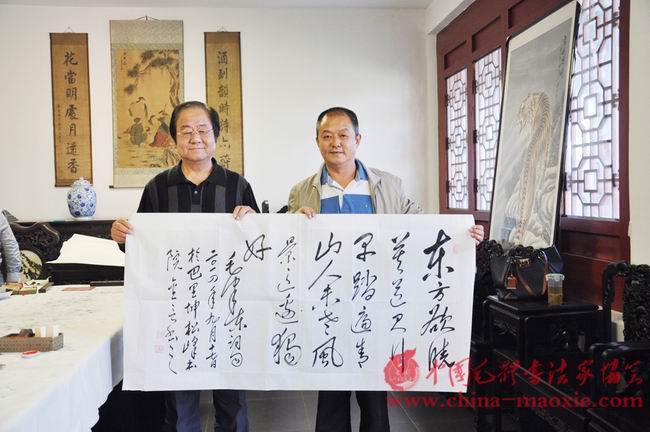 花當明處月香
酒到韻時
东方欲晓
莫道君行
早踏遍青
山人未老风
景这边独
好
毛泽东词句
二〇一四年九月
於巴里坤松峰书
院
中国毛体书法家协会
www.china-maoxie.com